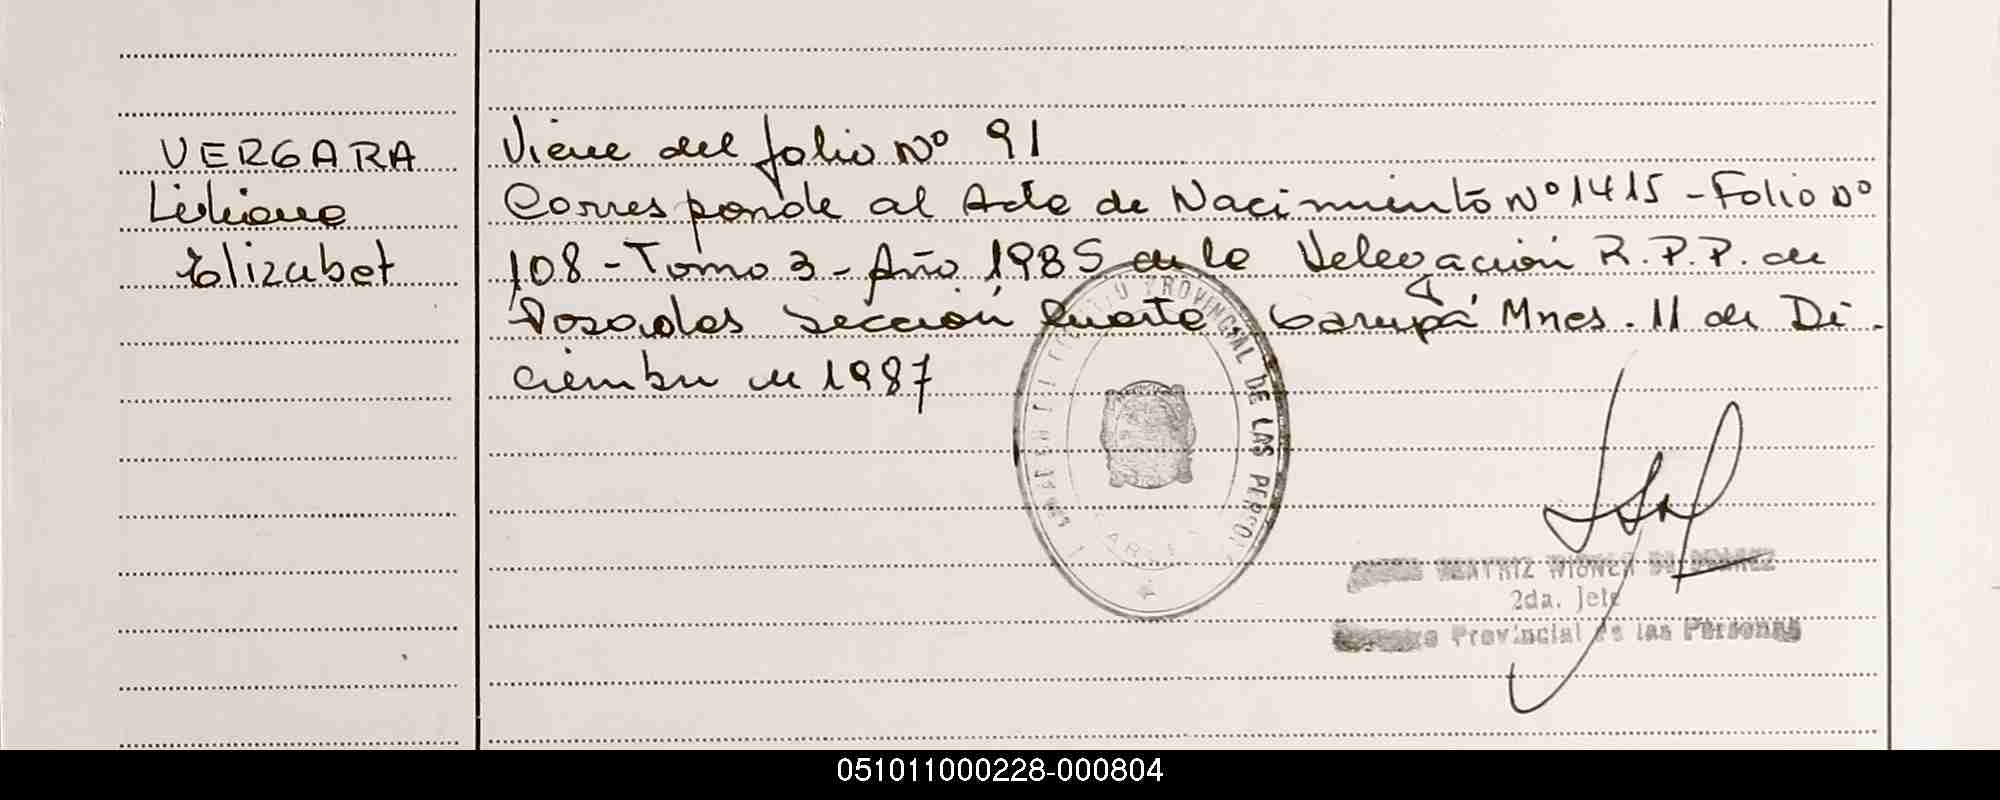 VERGARA
Liliana
Elizabet
Viene del folio Nº 91
Corresponde al Acta de Nacimiento Nº 1415 - Folio Nº
108 - Tomo 3 - Año 1985 de la Delegación R.P.P. de
Posadas Sección Cuarta Garupá Mnes. 11 de Di
ciembre de 1987
PROVINCIAL DE LAS PERSO
BEATRIZ
2da. Jefe
Provincial de las Personas
051011000228-000804